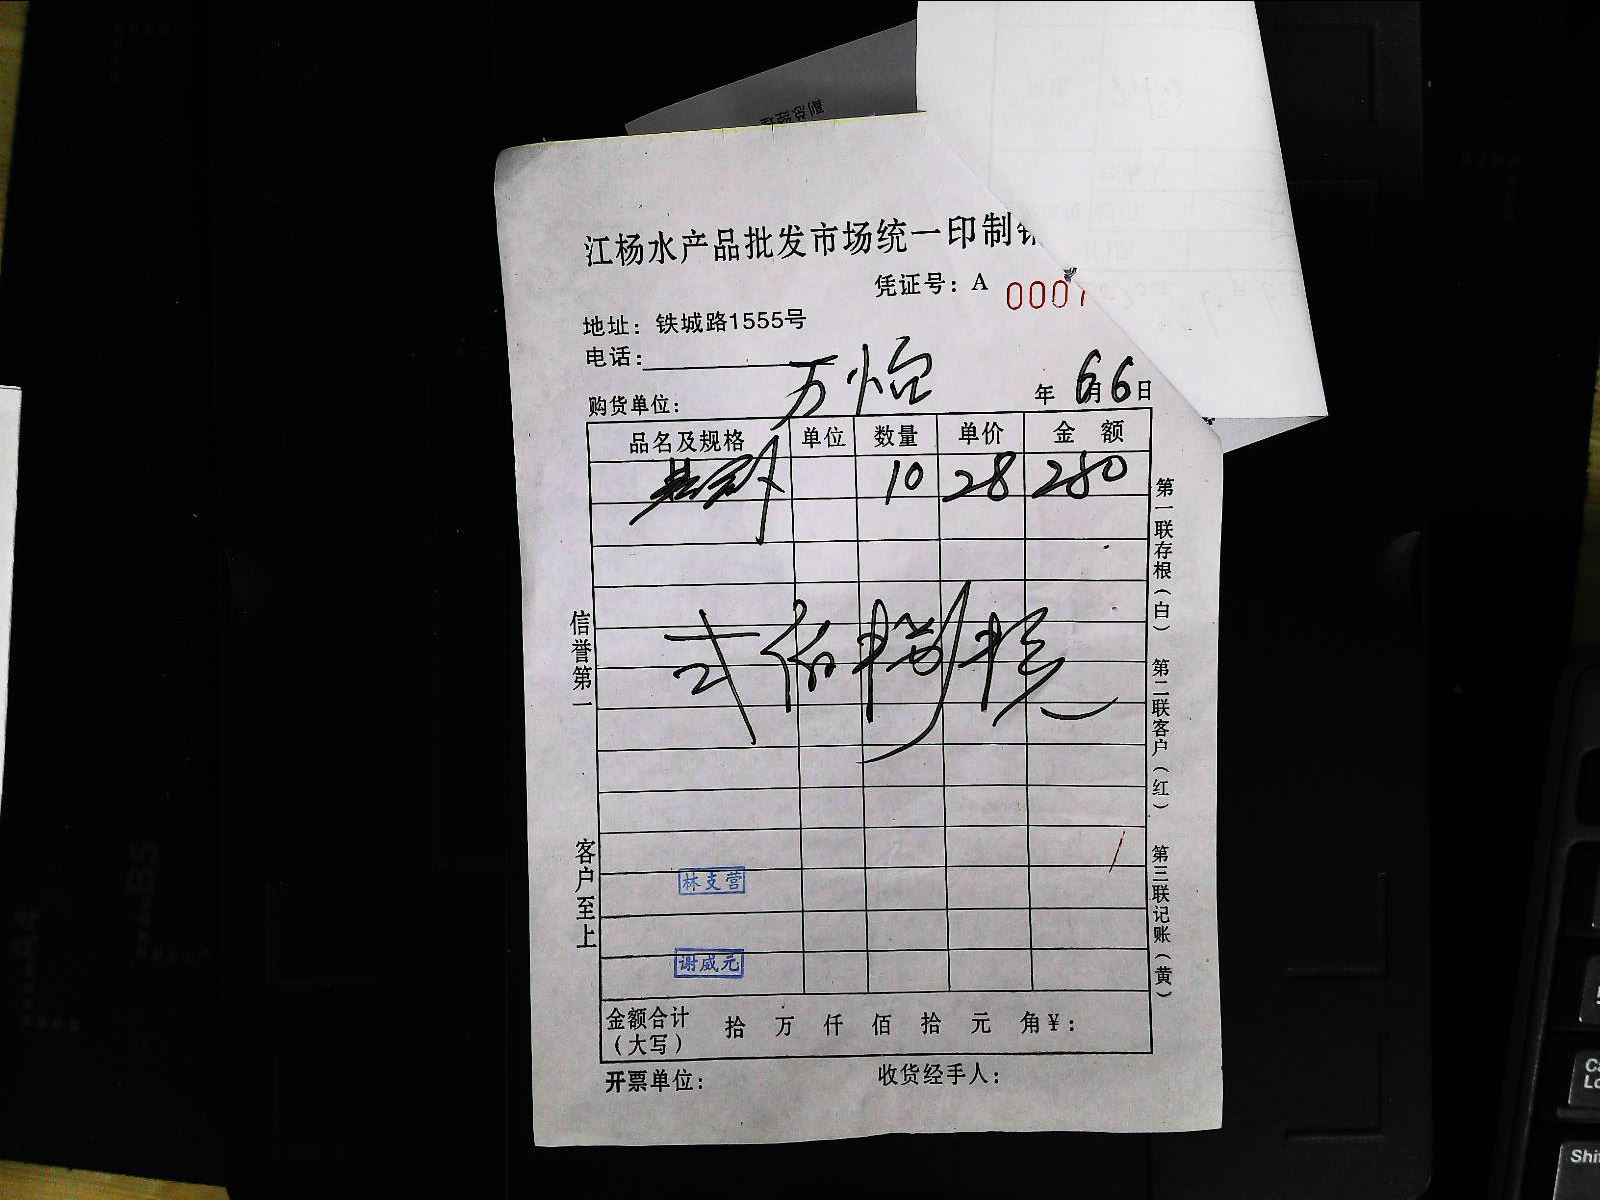 江杨水产品批发市场统一印制
凭证号：A 0007
地址：铁城路1555号
电话：
购货单位： 万怡 年 6月6日
品名及规格 单位 数量 单价 金 额
10 28 280
弍佰捌拾
林支营
谢威元
金额合计（大写） 拾 万 仟 佰 拾 元 角￥：
开票单位： 收货经手人：
信誉第一 客户至上
第一联存根（白） 第二联客户（红） 第三联记账（黄）
A4
B5
Shi